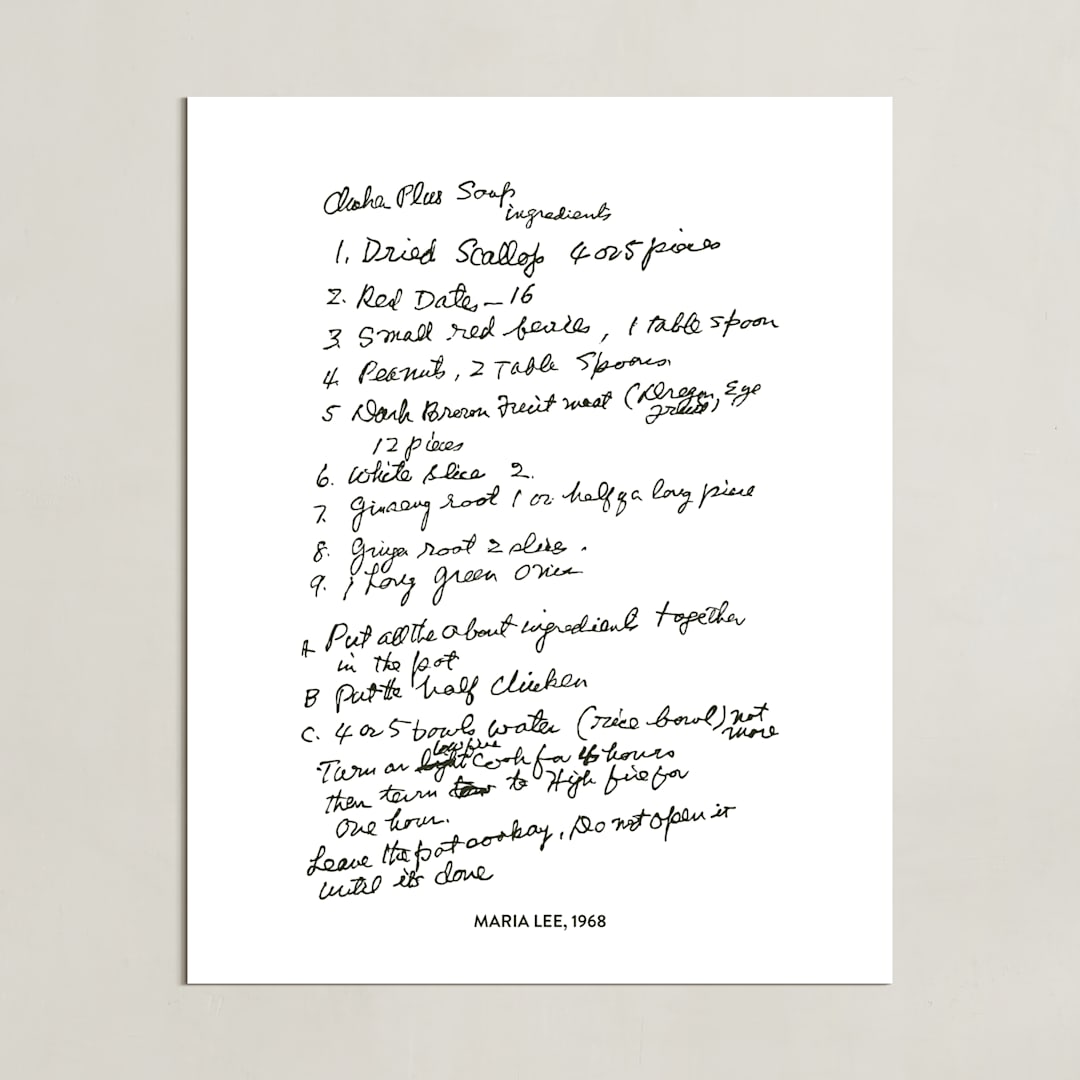 Plus Soup
ingredients
1. Dried Scallop 4 or 5 pieces
2. Red Dates – 16
3. Small red berries, 1 table spoon
4. Peanuts, 2 Table Spoons.
5 Dark Brown Fruit meat (Dragon, Eye
fruit)
12 pieces
6. White slice 2.
7. Ginseng root 1 or half of a long piece
8. root 2 slices.
9. 1 Long green
A Put all the about ingredients together
in the pot
B Put the half Chicken
C. 4 or 5 bowls water (rice bowl) not
more
low fire
Turn on Cook for 4 hours
then turn to High fire for
One hour.
Leave the pot . Do not open it
until its done
MARIA LEE, 1968